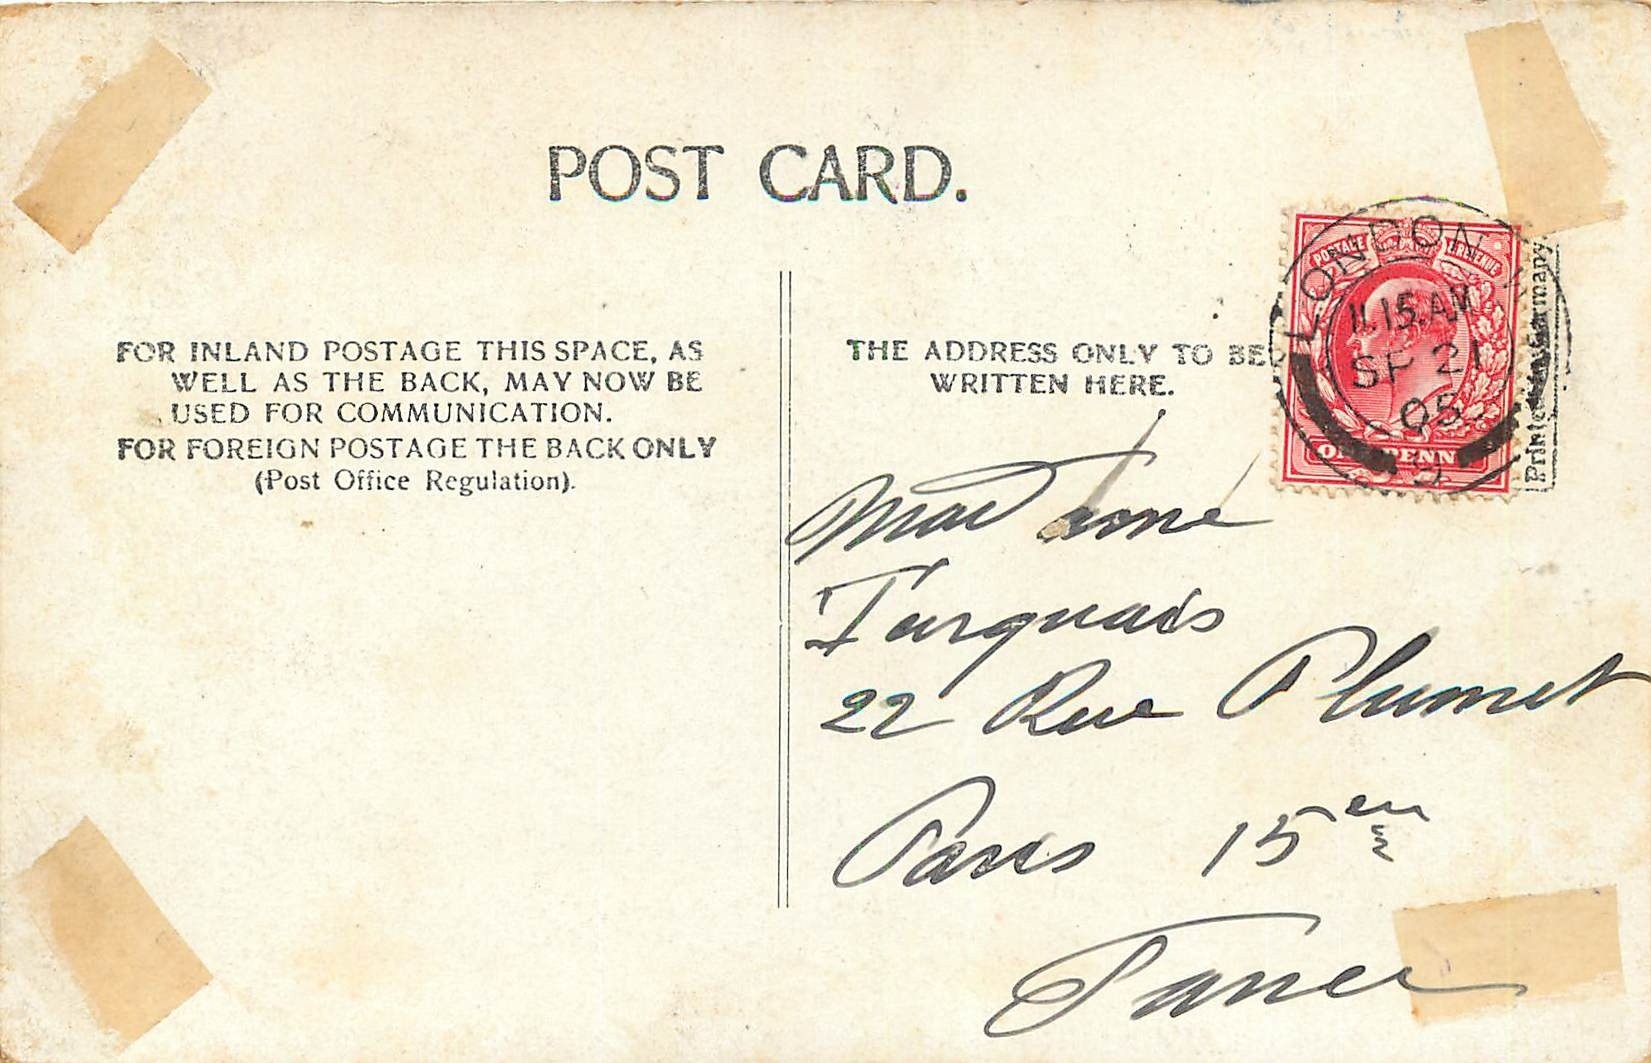 POST CARD.
FOR INLAND POSTAGE THIS SPACE, AS
WELL AS THE BACK, MAY NOW BE
USED FOR COMMUNICATION.
FOR FOREIGN POSTAGE THE BACK ONLY
(Post Office Regulation).
THE ADDRESS ONLY TO BE
WRITTEN HERE.
POSTAGE REVENUE
ONE PENNY
LONDON
11.15.AM
SP 21
05
Printed in Germany
Madame
Turquais
22 Rue Plumet
Paris 15em